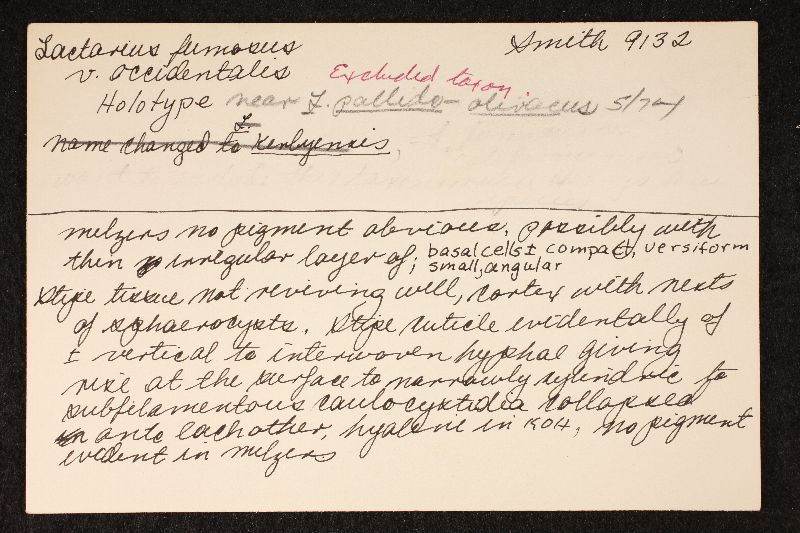 Lactarius fumosus Smith 9132
v. occidentalis Excluded taxon
Holotype near L. pallido-olivaceus 5/74
name changed to L. kerbyensis,
melzers no pigment obvious, possibly with
thin irregular layer of; basal cells ± compact, versiform
small, angular
Stipe tissue not reviving well, cortex with nests
of sphaerocysts. Stipe cuticle evidentally of
± vertical to interwoven hyphae giving
rise at the surface to narrowly cylindric to
subfilamentous caulocystidia collapsed
onto eachother, hyaline in KOH, no pigment
evident in melzers